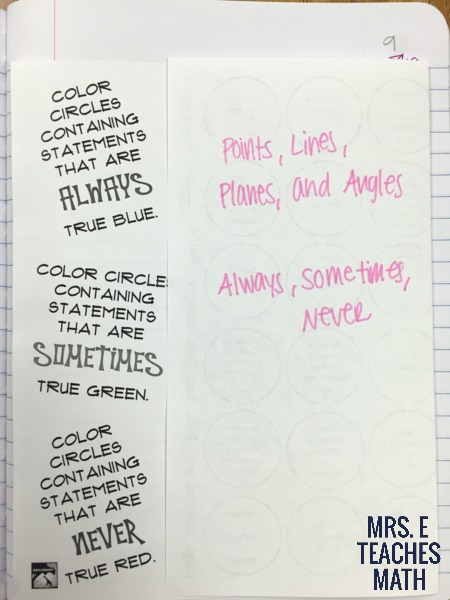 9
COLOR
CIRCLES
CONTAINING
STATEMENTS
THAT ARE
ALWAYS
TRUE BLUE.
COLOR CIRCLE
CONTAINING
STATEMENTS
THAT ARE
SOMETIMES
TRUE GREEN.
COLOR
CIRCLES
CONTAINING
STATEMENTS
THAT ARE
NEVER
TRUE RED.
Points, Lines,
Planes, and Angles
Always, Sometimes,
Never
MRS. E
TEACHES
MATH